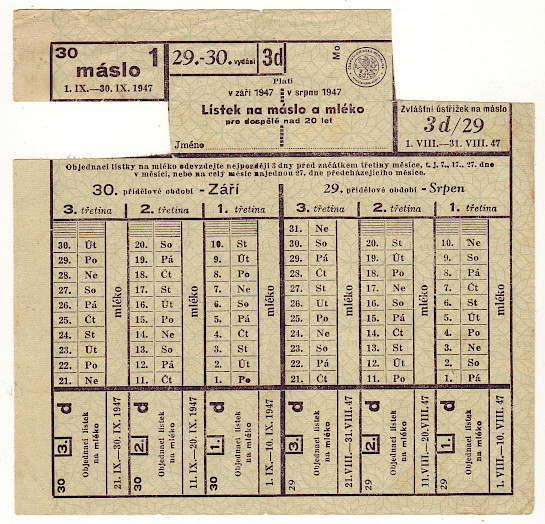 30 1
máslo
1. IX.—30. IX. 1947
29.-30. vydání 3d
Mo
Platí
v září 1947 v srpnu 1947
Lístek na máslo a mléko
pro dospělé nad 20 let
Jméno
Zvláštní ústřižek na máslo
3d/29
1. VIII.—31. VIII. 47
Objednací lístky na mléko odevzdejte nejpozději 3 dny před začátkem třetiny měsíce, t. j. 7., 17., 27. dne
v měsíci, nebo na celý měsíc najednou 27. dne předcházejícího měsíce.
30. přídělové období - Září 29. přídělové období - Srpen
3. třetina 2. třetina 1. třetina 3. třetina 2. třetina 1. třetina
31. Ne
30. Út 20. So 10. St 30. So 20. St 10. Ne
29. Po 19. Pá 9. Út 29. Pá 19. Út 9. So
28. Ne 18. Čt 8. Po 28. Čt 18. Po 8. Pá
27. So 17. St 7. Ne 27. St 17. Ne 7. Čt
26. Pá 16. Út 6. So 26. Út 16. So 6. St
25. Čt 15. Po 5. Pá 25. Po 15. Pá 5. Út
24. St 14. Ne 4. Čt 24. Ne 14. Čt 4. Po
23. Út 13. So 3. St 23. So 13. St 3. Ne
22. Po 12. Pá 2. Út 22. Pá 12. Út 2. So
21. Ne 11. Čt 1. Po 21. Čt 11. Po 1. Pá
mléko
mléko
mléko
mléko
mléko
mléko
30 3. d
Objednací lístek
na mléko
21. IX.—30. IX. 1947
30 2. d
Objednací lístek
na mléko
11. IX.—20. IX. 1947
30 1. d
Objednací lístek
na mléko
1. IX.—10. IX. 1947
29 3. d
Objednací lístek
na mléko
21. VIII.—31. VIII. 47
29 2. d
Objednací lístek
na mléko
11. VIII.—20. VIII. 47
29 1. d
Objednací lístek
na mléko
1. VIII.—10. VIII. 47